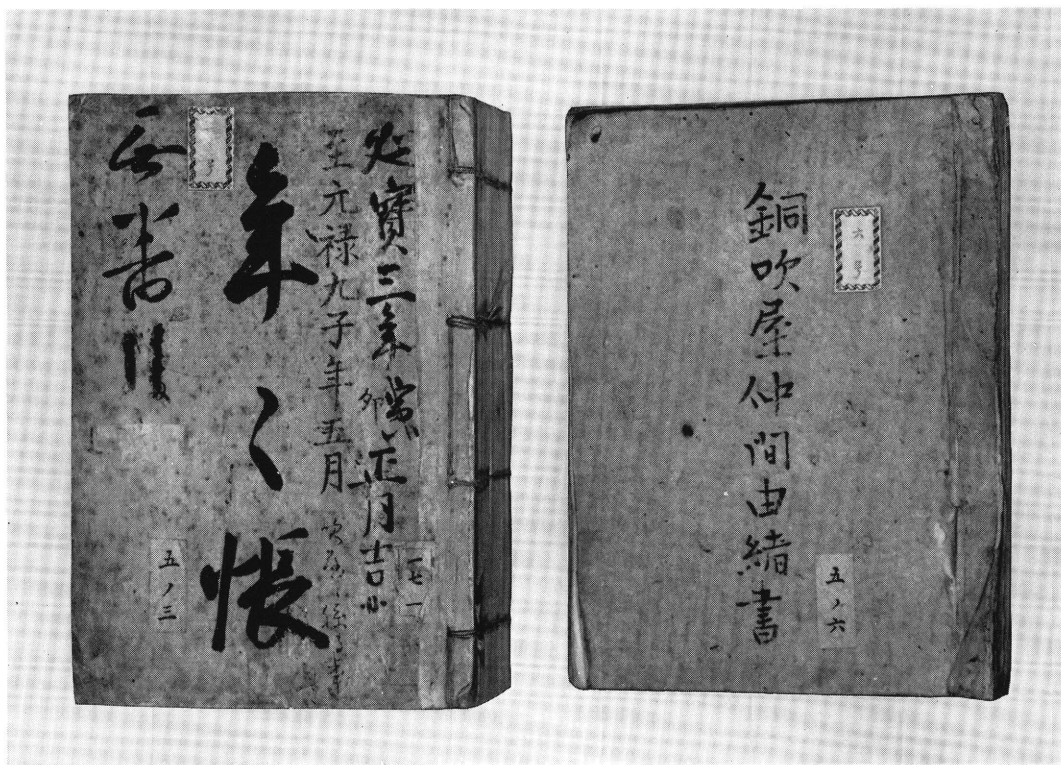 六号
銅吹屋仲間由緒書
五ノ六
延寶三年卯正月吉日
至元禄九子年五月
年々帳
無番
五ノ三